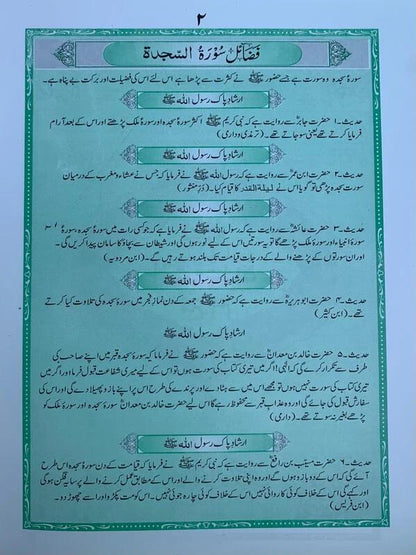 ۲
فضائل سُورَۃُ السَّجدۃ
سورۂ سجدہ وہ سورت ہے جسے حضور ﷺ نے کثرت سے پڑھا ہے اس لئے اس کی فضیلت اور برکت بے پناہ ہے۔
ارشادِ پاک رسول اللہ ﷺ
حدیث۔۱ حضرت جابرؓ سے روایت ہے کہ نبی کریم ﷺ اکثر سورۂ سجدہ اور سورۂ ملک پڑھتے اور اس کے بعد آرام
فرمایا کرتے تھے یعنی سو جاتے تھے۔ (ترمذی و داری)
ارشادِ پاک رسول اللہ ﷺ
حدیث۔۲ حضرت ابن عمرؓ سے روایت ہے کہ نبی کریم ﷺ نے فرمایا کہ جس نے عشاء و مغرب کے درمیان
سورت سجدہ پڑھی تو گویا اس نے لیلۃ القدر کا قیام کیا۔ (درّ منثور)
ارشادِ پاک رسول اللہ ﷺ
حدیث۔۳ حضرت عائشہؓ سے روایت ہے کہ حضور ﷺ نے فرمایا ہے کہ جو کسی رات میں سورۂ سجدہ، سورۂ
سورۂ انبیاء اور سورۂ ملک پڑھے گا تو یہ سورتیں اس کے لیے نور ہوں گی اور شیطان سے بچاؤ کا سامان پیدا کریں گی۔
اور ان سورتوں کے پڑھنے والے کے درجات قیامت تک بلند ہوتے رہیں گے۔ (ابن مردویہ)
ارشادِ پاک رسول اللہ ﷺ
حدیث۔۴ حضرت ابوہریرہؓ سے روایت ہے کہ حضور ﷺ جمعہ کے دن نماز فجر میں سورۂ سجدہ کی تلاوت کیا کرتے
تھے۔ (ابن کثیر)
ارشادِ پاک رسول اللہ ﷺ
حدیث۔۵ حضرت خالد بن معدانؓ سے روایت ہے کہ حضور ﷺ نے فرمایا کہ سورۂ سجدہ قبر میں اپنے صاحب کی
طرف سے تکرار کرے گی کہ الٰہی! اگر میں تیری کتاب کی سورت ہوں تو اس کے لیے میری شفاعت قبول فرما اور اگر میں
تیری کتاب کی سورت نہیں ہوں تو مجھے اس میں سے ہٹا دے اور پرندے کی طرح اس پر اپنے بازو پھیلا دے گی اور اس کی
سفارش قبول کی جائے گی اور وہ عذاب قبر سے محفوظ رہے گا اس لیے حضرت خالد بن معدانؓ سورۂ سجدہ اور سورۂ ملک کو
پڑھے بغیر نہ سوتے تھے۔ (داری)
ارشادِ پاک رسول اللہ ﷺ
حدیث۔۶ حضرت مسیّب بن رافعؓ سے روایت ہے کہ نبی کریم ﷺ نے فرمایا کہ قیامت کے دن سورۂ سجدہ اس طرح
آئے گی کہ اس کے دو بازو ہوں گے اور وہ اپنی تلاوت کرنے والے اور اس کے مطابق عمل کرنے والے پر سایہ فگن ہو گی
اور کہے گی اس کے خلاف کوئی کارروائی نہیں اس کے خلاف کوئی چارہ جوئی نہیں۔ اس کو مت پکڑو اور اسے چھوڑ دو۔
(ابن فریس)